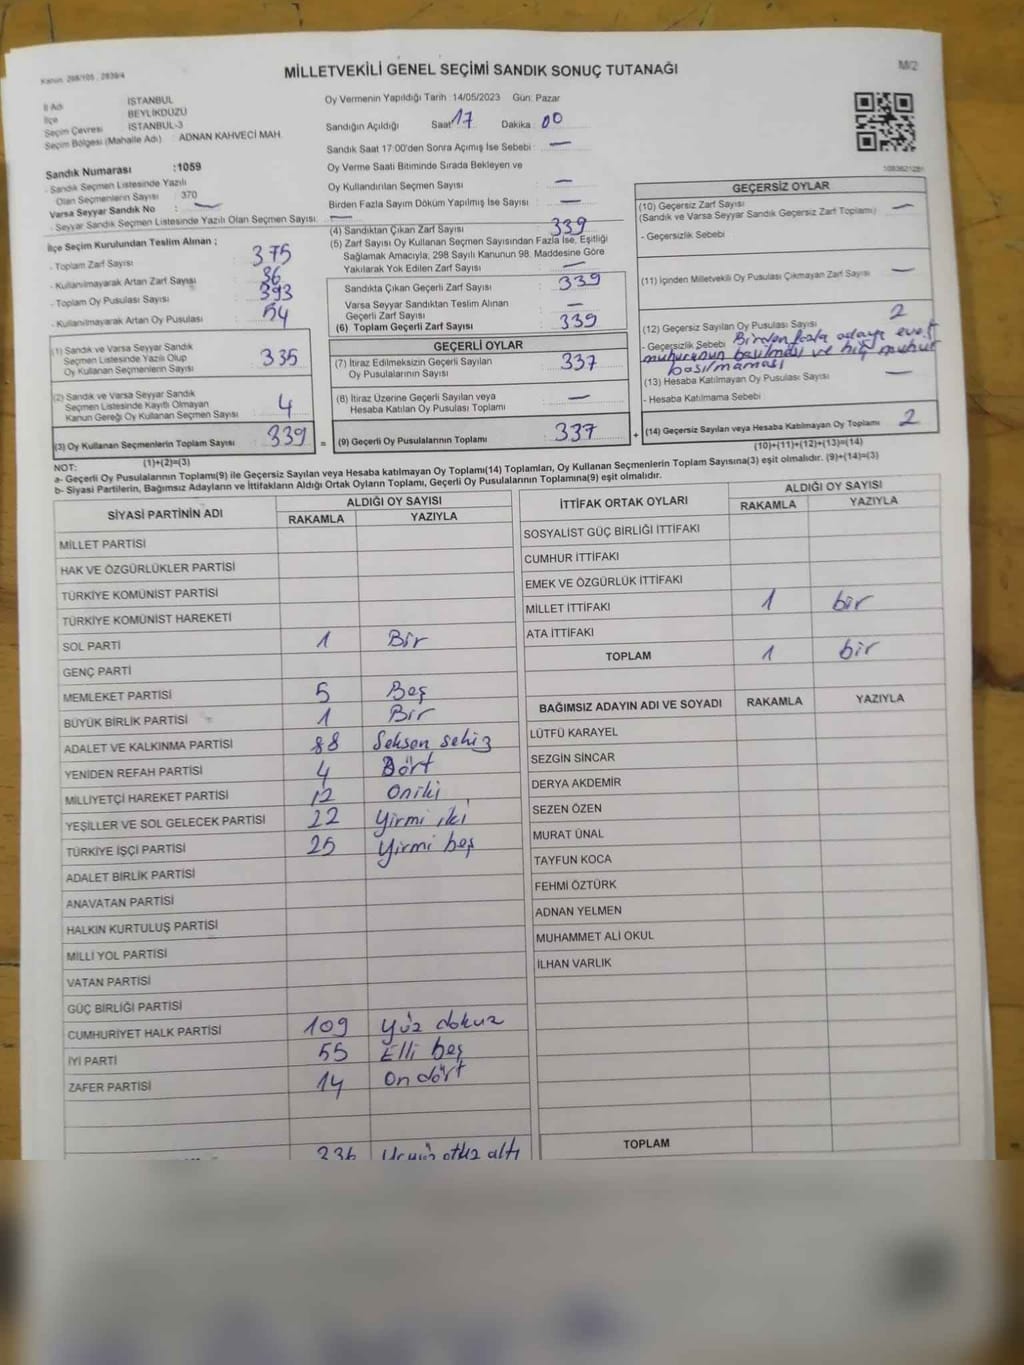 Kanun: 298/105 , 2839/4
MİLLETVEKİLİ GENEL SEÇİMİ SANDIK SONUÇ TUTANAĞI
M/2
İl Adı İSTANBUL
İlçe BEYLİKDÜZÜ
Seçim Çevresi İSTANBUL-3
Seçim Bölgesi (Mahalle Adı) : ADNAN KAHVECİ MAH.
Sandık Numarası :1059
- Sandık Seçmen Listesinde Yazılı
Olan Seçmenlerin Sayısı : 370
Varsa Seyyar Sandık No : —
- Seyyar Sandık Seçmen Listesinde Yazılı Olan Seçmen Sayısı: —
İlçe Seçim Kurulundan Teslim Alınan ;
- Toplam Zarf Sayısı : 375
- Kullanılmayarak Artan Zarf Sayısı : 36
- Toplam Oy Pusulası Sayısı : 393
- Kullanılmayarak Artan Oy Pusulası : 54
(1) Sandık ve Varsa Seyyar Sandık
Seçmen Listesinde Yazılı Olup
Oy Kullanan Seçmenlerin Sayısı : 335
(2) Sandık ve Varsa Seyyar Sandık
Seçmen Listesinde Kayıtlı Olmayan
Kanun Gereği Oy Kullanan Seçmen Sayısı : 4
(3) Oy Kullanan Seçmenlerin Toplam Sayısı : 339
(1)+(2)=(3)
Oy Vermenin Yapıldığı Tarih :14/05/2023 Gün: Pazar
Sandığın Açıldığı Saat 17 Dakika : 00
Sandık Saat 17:00'den Sonra Açımış İse Sebebi : —
Oy Verme Saati Bitiminde Sırada Bekleyen ve
Oy Kullandırılan Seçmen Sayısı : —
Birden Fazla Sayım Döküm Yapılmış İse Sayısı : —
(4) Sandıktan Çıkan Zarf Sayısı : 339
(5) Zarf Sayısı Oy Kullanan Seçmen Sayısından Fazla İse, Eşitliği
Sağlamak Amacıyla; 298 Sayılı Kanunun 98. Maddesine Göre
Yakılarak Yok Edilen Zarf Sayısı : —
Sandıkta Çıkan Geçerli Zarf Sayısı : 339
Varsa Seyyar Sandıktan Teslim Alınan
Geçerli Zarf Sayısı : —
(6) Toplam Geçerli Zarf Sayısı : 339
GEÇERLİ OYLAR
(7) İtiraz Edilmeksizin Geçerli Sayılan
Oy Pusulalarının Sayısı : 337
(8) İtiraz Üzerine Geçerli Sayılan veya
Hesaba Katılan Oy Pusulası Toplamı : —
= (9) Geçerli Oy Pusulalarının Toplamı : 337
1083621281
GEÇERSİZ OYLAR
(10) Geçersiz Zarf Sayısı
(Sandık ve Varsa Seyyar Sandık Geçersiz Zarf Toplamı) : —
- Geçersizlik Sebebi
(11) İçinden Milletvekili Oy Pusulası Çıkmayan Zarf Sayısı : —
(12) Geçersiz Sayılan Oy Pusulası Sayısı : 2
- Geçersizlik Sebebi Birden fazla adaya evet
muhurunun basılması ve hiç muhur
basılmaması
(13) Hesaba Katılmayan Oy Pusulası Sayısı : —
- Hesaba Katılmama Sebebi
+ (14) Geçersiz Sayılan veya Hesaba Katılmayan Oy Toplamı : 2
(10)+(11)+(12)+(13)=(14)
NOT:
a- Geçerli Oy Pusulalarının Toplamı(9) ile Geçersiz Sayılan veya Hesaba katılmayan Oy Toplamı(14) Toplamları, Oy Kullanan Seçmenlerin Toplam Sayısına(3) eşit olmalıdır. (9)+(14)=(3)
b- Siyasi Partilerin, Bağımsız Adayların ve İttifakların Aldığı Ortak Oyların Toplamı, Geçerli Oy Pusulalarının Toplamına(9) eşit olmalıdır.
SİYASİ PARTİNİN ADI ALDIĞI OY SAYISI
RAKAMLA YAZIYLA
MİLLET PARTİSİ
HAK VE ÖZGÜRLÜKLER PARTİSİ
TÜRKİYE KOMÜNİST PARTİSİ
TÜRKİYE KOMÜNİST HAREKETİ
SOL PARTİ 1 Bir
GENÇ PARTİ
MEMLEKET PARTİSİ 5 Beş
BÜYÜK BİRLİK PARTİSİ 1 Bir
ADALET VE KALKINMA PARTİSİ 88 Seksen sekiz
YENİDEN REFAH PARTİSİ 4 Dört
MİLLİYETÇİ HAREKET PARTİSİ 12 Oniki
YEŞİLLER VE SOL GELECEK PARTİSİ 22 Yirmi iki
TÜRKİYE İŞÇİ PARTİSİ 25 Yirmi beş
ADALET BİRLİK PARTİSİ
ANAVATAN PARTİSİ
HALKIN KURTULUŞ PARTİSİ
MİLLİ YOL PARTİSİ
VATAN PARTİSİ
GÜÇ BİRLİĞİ PARTİSİ
CUMHURİYET HALK PARTİSİ 109 Yüz dokuz
İYİ PARTİ 55 Elli beş
ZAFER PARTİSİ 14 On dört
336 Üçyüz otuz altı
İTTİFAK ORTAK OYLARI ALDIĞI OY SAYISI
RAKAMLA YAZIYLA
SOSYALİST GÜÇ BİRLİĞİ İTTİFAKI
CUMHUR İTTİFAKI
EMEK VE ÖZGÜRLÜK İTTİFAKI
MİLLET İTTİFAKI 1 bir
ATA İTTİFAKI
TOPLAM 1 bir
BAĞIMSIZ ADAYIN ADI VE SOYADI RAKAMLA YAZIYLA
LÜTFÜ KARAYEL
SEZGİN SİNCAR
DERYA AKDEMİR
SEZEN ÖZEN
MURAT ÜNAL
TAYFUN KOCA
FEHMİ ÖZTÜRK
ADNAN YELMEN
MUHAMMET ALİ OKUL
İLHAN VARLIK
TOPLAM